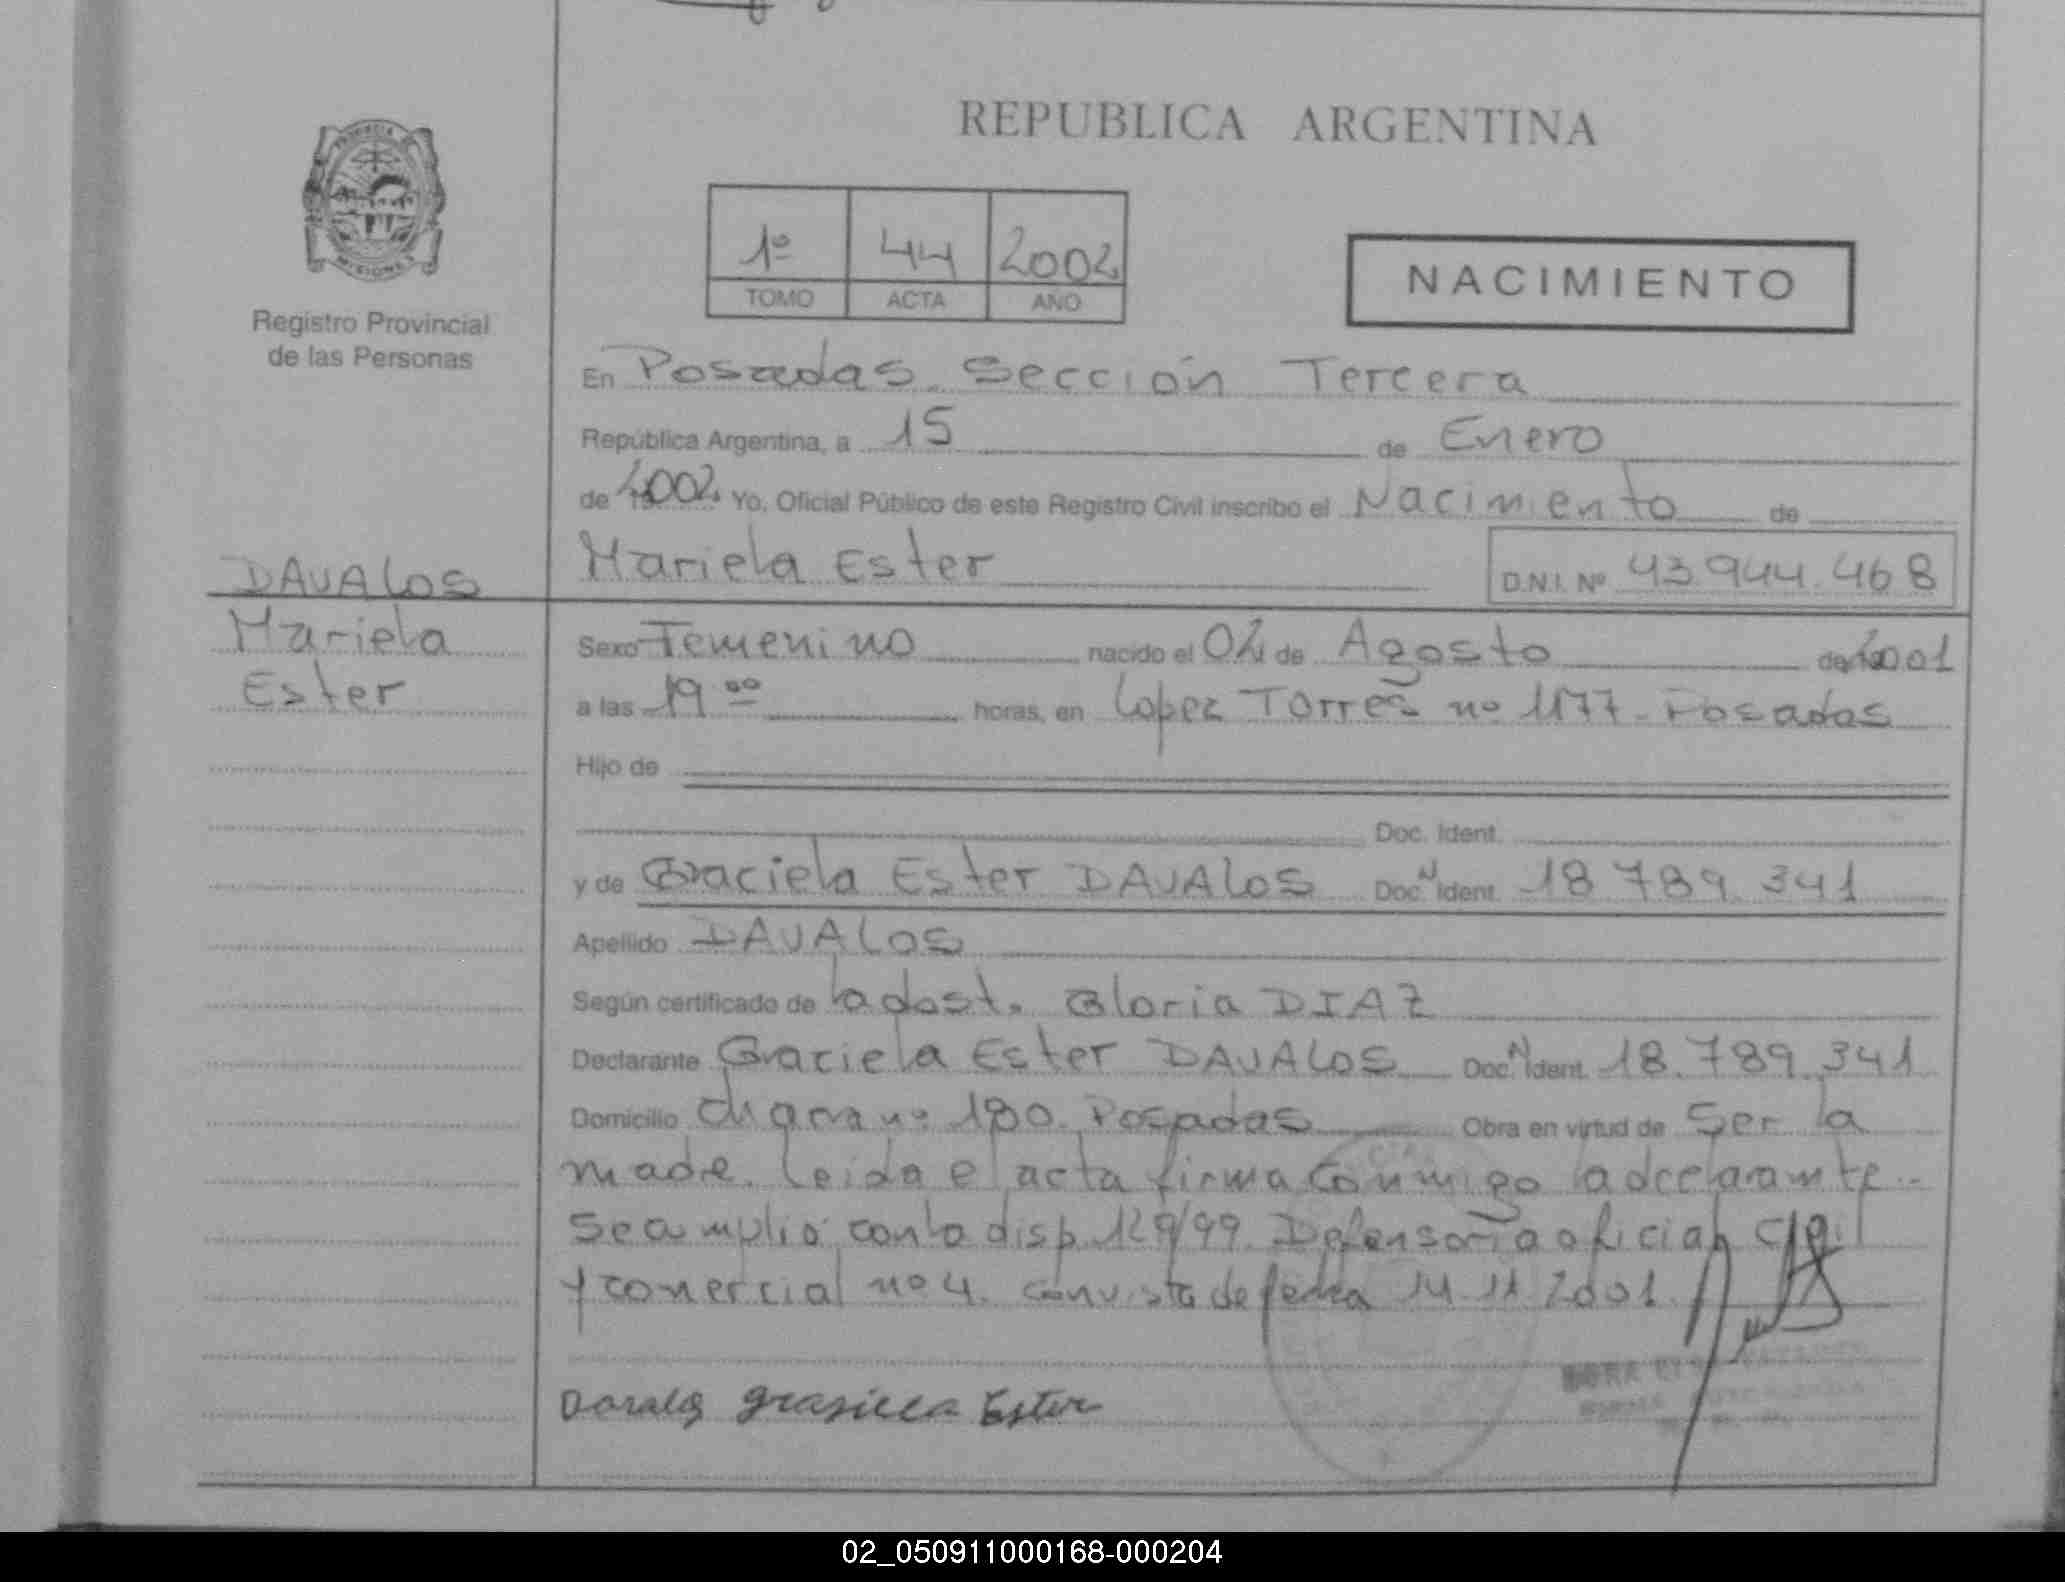 REPUBLICA ARGENTINA
PROVINCIA
MISIONES
Registro Provincial
de las Personas
1º 44 2002
TOMO ACTA AÑO
NACIMIENTO
En Posadas. Sección Tercera
República Argentina, a 15 de Enero
de 2002 Yo, Oficial Público de este Registro Civil inscribo el Nacimiento de
Mariela Ester D.N.I. Nº 43.944.468
DAVALOS
Mariela
Ester
Sexo Femenino nacido el 02 de Agosto de 2001
a las 19 00 horas, en Lopez Torres nº 1177 - Posadas
Hijo de
Doc. Ident.
y de Graciela Ester DAVALOS Doc. N Ident. 18.789.341
Apellido DAVALOS
Según certificado de la obst. Gloria DIAZ
Declarante Graciela Ester DAVALOS Doc. N Ident. 18.789.341
Domicilio chacra nº 180. Posadas Obra en virtud de Ser la
madre. Leida el acta firma conmigo la declarante.-
Se amplió con la disp. 129/99. Defensoria oficial Civil
y comercial nº 4. con vista de fecha 14.11.2001.
Davalos grasiela Ester
02_050911000168-000204